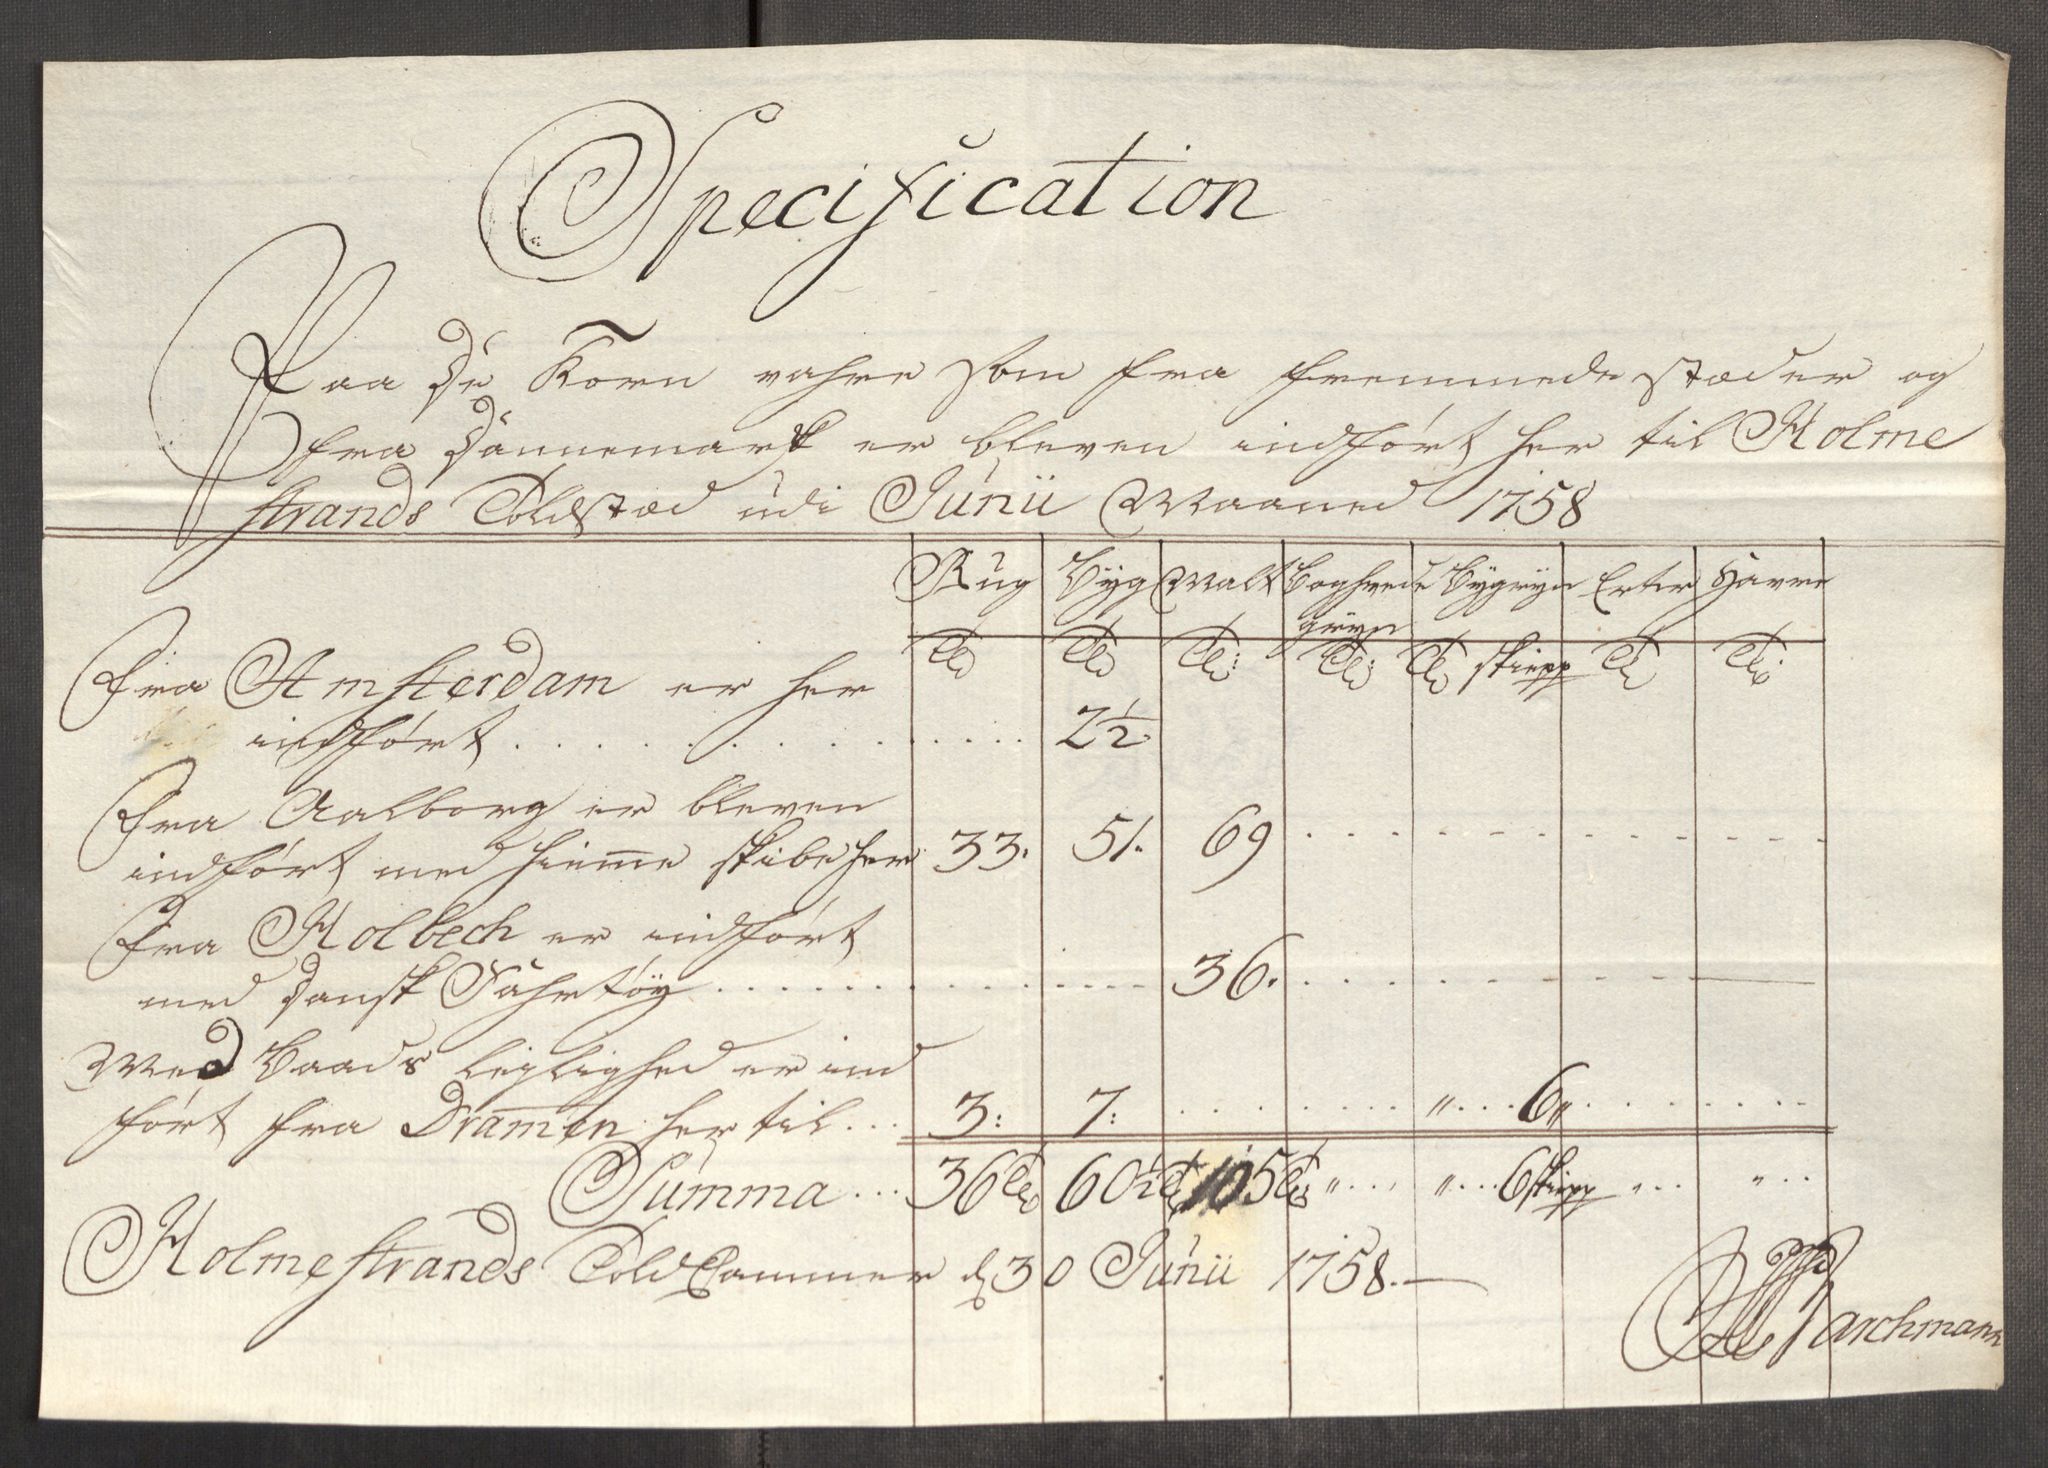 Specification
Paa de Korn vahre som fra fremmede stæder og
fra Dannemark er bleven indført her til Holme
strands Toldstæd udi Junii Maaned 1758
Rug Byg Malt Boghvede Byggryn Erter Havre
gryn
Tdr Tdr Tdr: Tdr: Tdr skiepp Tdr Tdr:
Fra Amsterdam er her
indført . . . . . . . . . . . . 2½.
Fra Aalborg er bleven
indført med hiemme skibe her 33. 51. 69 . . . . . . . . . .
Fra Holbech er indført
med Dansk Fahrtøy . . . . . . . . . . 36. . . . . . . . .
Med Baads leylighed er ind
ført fra Drammen her til . . . 3: 7: . . . . . . . . „ . . . 6„ . . . . . . .
Summa . . . 36 Tdr 60½ Tdr 105 Tdr „ . . . „ . . . 6 skiepp „ . . . „ . . .
Holmestrands Told Cammer d 30 Junii 1758. —
Parchmann